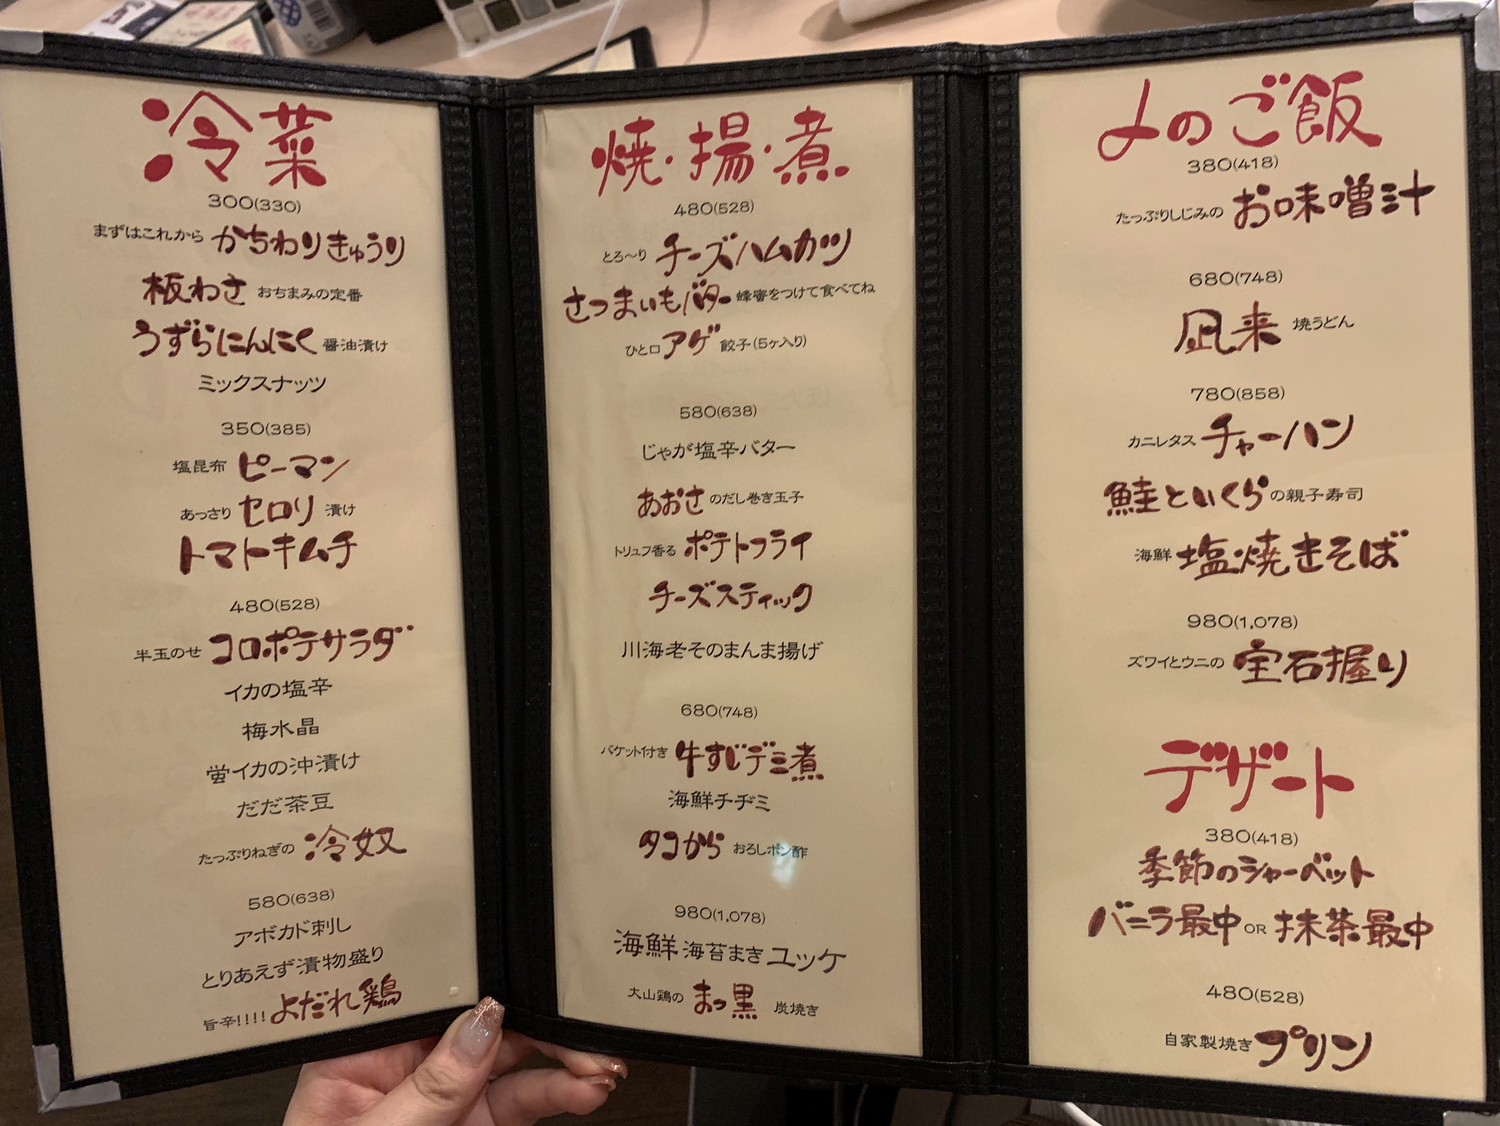 冷菜
300(330)
まずはこれから かちわりきゅうり
板わさ おちまみの定番
うずらにんにく 醤油漬け
ミックスナッツ
350(385)
塩昆布 ピーマン
あっさり セロリ 漬け
トマトキムチ
480(528)
半玉のせ コロポテサラダ
イカの塩辛
梅水晶
蛍イカの沖漬け
だだ茶豆
たっぷりねぎの 冷奴
580(638)
アボカド刺し
とりあえず漬物盛り
旨辛!!!! よだれ鶏
焼・揚・煮
480(528)
とろ〜り チーズハムカツ
さつまいもバター 蜂蜜をつけて食べてね
ひと口 アゲ 餃子(5ヶ入り)
580(638)
じゃが塩辛バター
あおさ のだし巻き玉子
トリュフ香る ポテトフライ
チーズスティック
川海老そのまんま揚げ
680(748)
バケット付き 牛すじデミ煮
海鮮チヂミ
タコから おろしポン酢
980(1,078)
海鮮 海苔まき ユッケ
大山鶏の まっ黒 炭焼き
〆のご飯
380(418)
たっぷりしじみの お味噌汁
680(748)
凪来 焼うどん
780(858)
カニレタス チャーハン
鮭といくら の親子寿司
海鮮 塩焼きそば
980(1,078)
ズワイとウニの 宝石握り
デザート
380(418)
季節のシャーベット
バニラ最中 OR 抹茶最中
480(528)
自家製焼き プリン